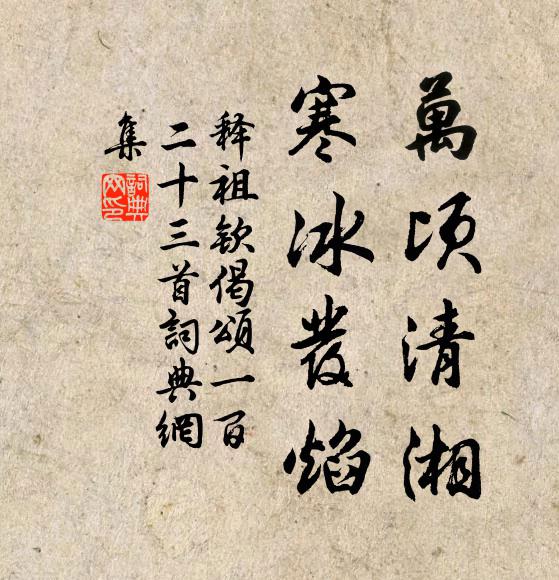 萬頃清湘
寒冰發焰
释祖欽偈頌一百
二十三首詞典網
集
詞典
网印